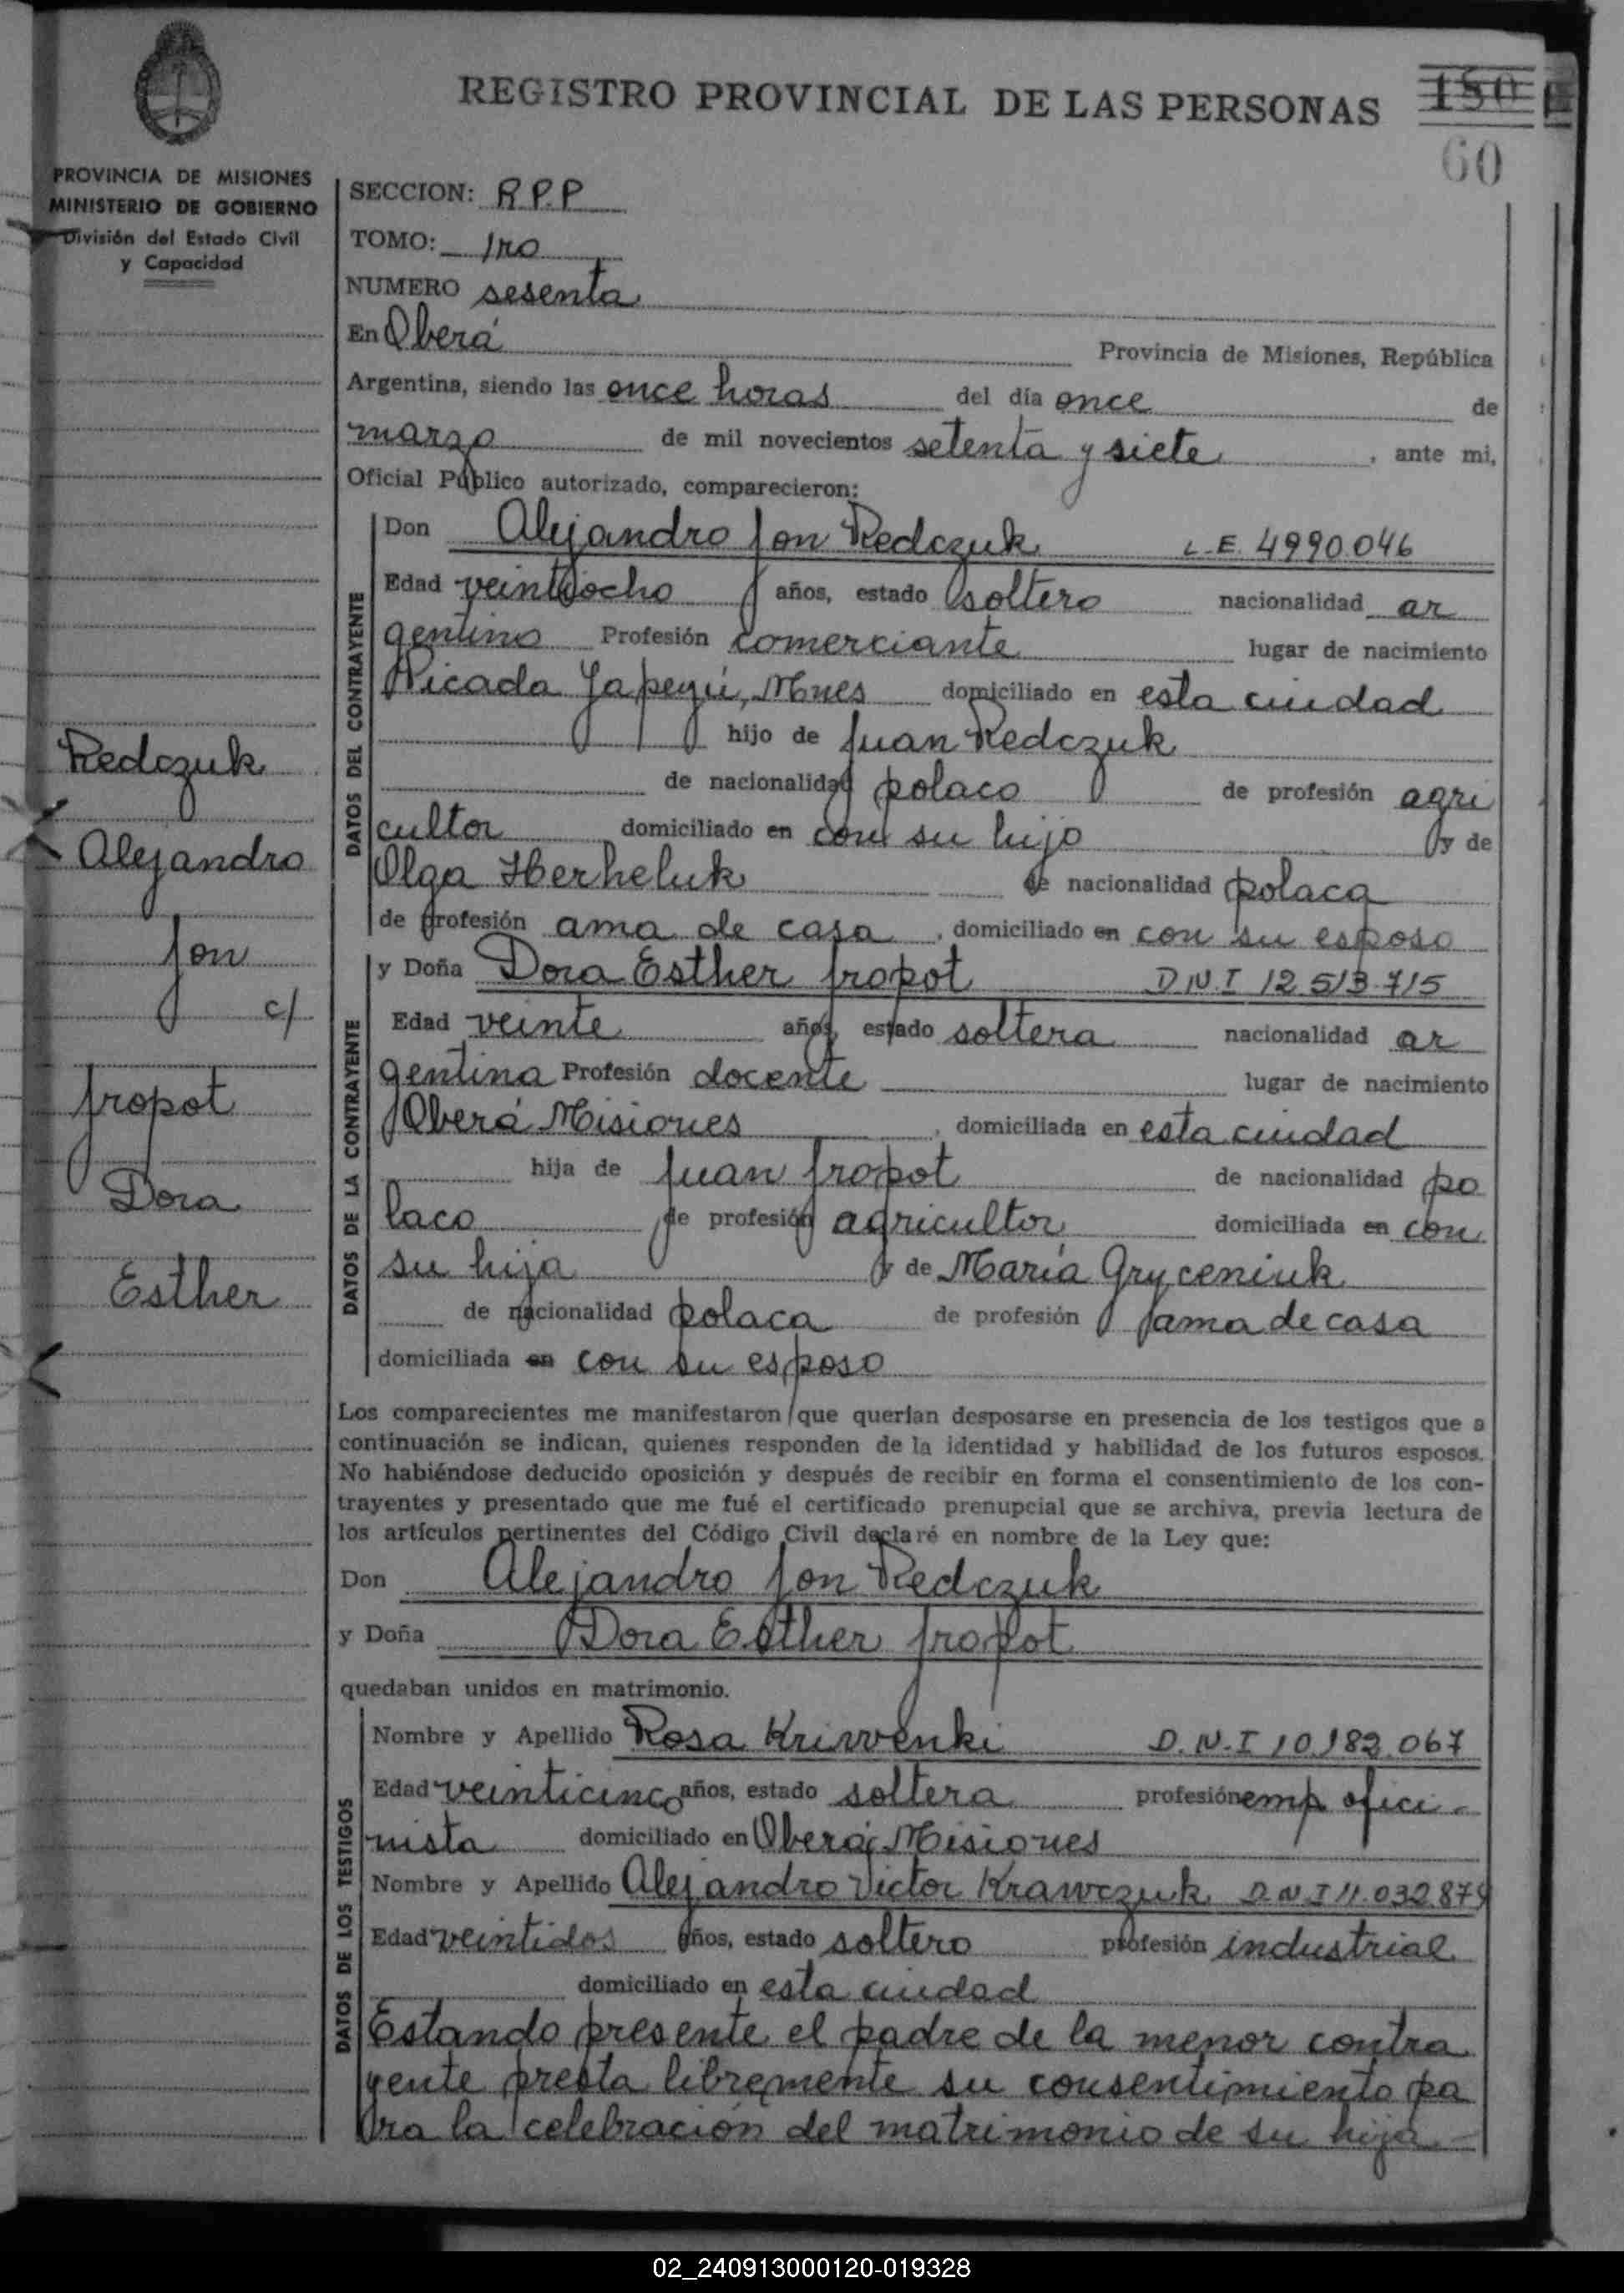 REGISTRO PROVINCIAL DE LAS PERSONAS
150
60
PROVINCIA DE MISIONES
MINISTERIO DE GOBIERNO
División del Estado Civil
y Capacidad
SECCION: R.P.P
TOMO: 1ro
NUMERO sesenta
En Oberá Provincia de Misiones, República
Argentina, siendo las once horas del día once de
marzo de mil novecientos setenta y siete, ante mi,
Oficial Público autorizado, comparecieron:
DATOS DEL CONTRAYENTE
Don Alejandro Jon Redczuk L.E. 4990.046
Edad veintiocho años, estado soltero nacionalidad ar
gentino Profesión comerciante lugar de nacimiento
Picada Yapeyú, Mnes domiciliado en esta ciudad
hijo de Juan Redczuk
de nacionalidad polaco de profesión agri
cultor domiciliado en con su hijo y de
Olga Herheluk de nacionalidad polaca
de profesión ama de casa, domiciliado en con su esposo
DATOS DE LA CONTRAYENTE
y Doña Dora Esther Jropot D.N.I 12.513.715
Edad veinte años, estado soltera nacionalidad ar
gentina Profesión docente lugar de nacimiento
Oberá Misiones, domiciliada en esta ciudad
hija de Juan Jropot de nacionalidad po
laco de profesión agricultor domiciliada en con
su hija y de María Gryceniuk
de nacionalidad polaca de profesión ama de casa
domiciliada en con su esposo
Redczuk
Alejandro
Jon
c/
Jropot
Dora
Esther
Los comparecientes me manifestaron que querían desposarse en presencia de los testigos que a
continuación se indican, quienes responden de la identidad y habilidad de los futuros esposos.
No habiéndose deducido oposición y después de recibir en forma el consentimiento de los con-
trayentes y presentado que me fué el certificado prenupcial que se archiva, previa lectura de
los artículos pertinentes del Código Civil declaré en nombre de la Ley que:
Don Alejandro Jon Redczuk
y Doña Dora Esther Jropot
quedaban unidos en matrimonio.
DATOS DE LOS TESTIGOS
Nombre y Apellido Rosa Kriwenki D.N.I 10.182.067
Edad veinticinco años, estado soltera profesión emp ofici-
nista domiciliado en Oberá, Misiones
Nombre y Apellido Alejandro Victor Krawczuk D.N.I 11.032.879
Edad veintidos años, estado soltero profesión industrial
domiciliado en esta ciudad
Estando presente el padre de la menor contra
yente presta libremente su consentimiento pa
ra la celebración del matrimonio de su hija.-
02_240913000120-019328